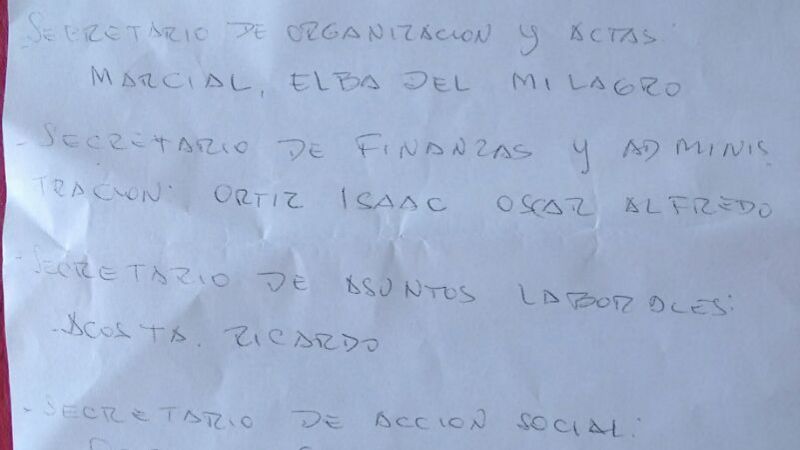 - SECRETARIO DE ORGANIZACION Y ACTAS:
MARCIAL, ELBA DEL MILAGRO
- SECRETARIO DE FINANZAS Y ADMINIS
TRACION: ORTIZ ISAAC OSCAR ALFREDO
- SECRETARIO DE ASUNTOS LABORALES:
- ACOSTA. RICARDO
- SECRETARIO DE ACCION SOCIAL: